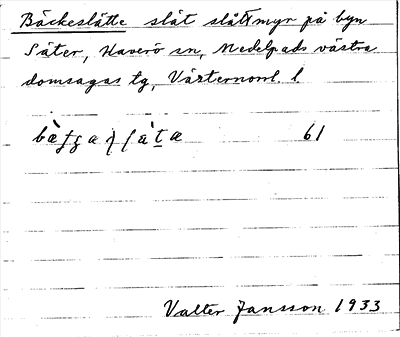 Bäckeslätte slåt slåttmyr på byn
Säter, Haverö sn, Medelpads västra
domsagas tg, Västernorrl. l
61
Valter Jansson 1933